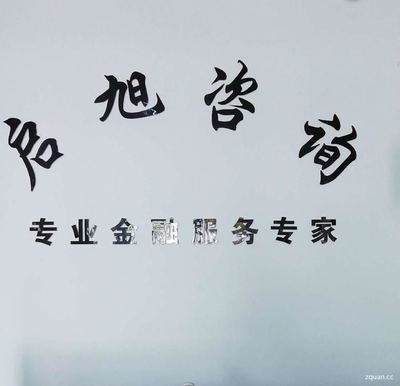 启旭咨询
专业金融服务专家
zquan.cc